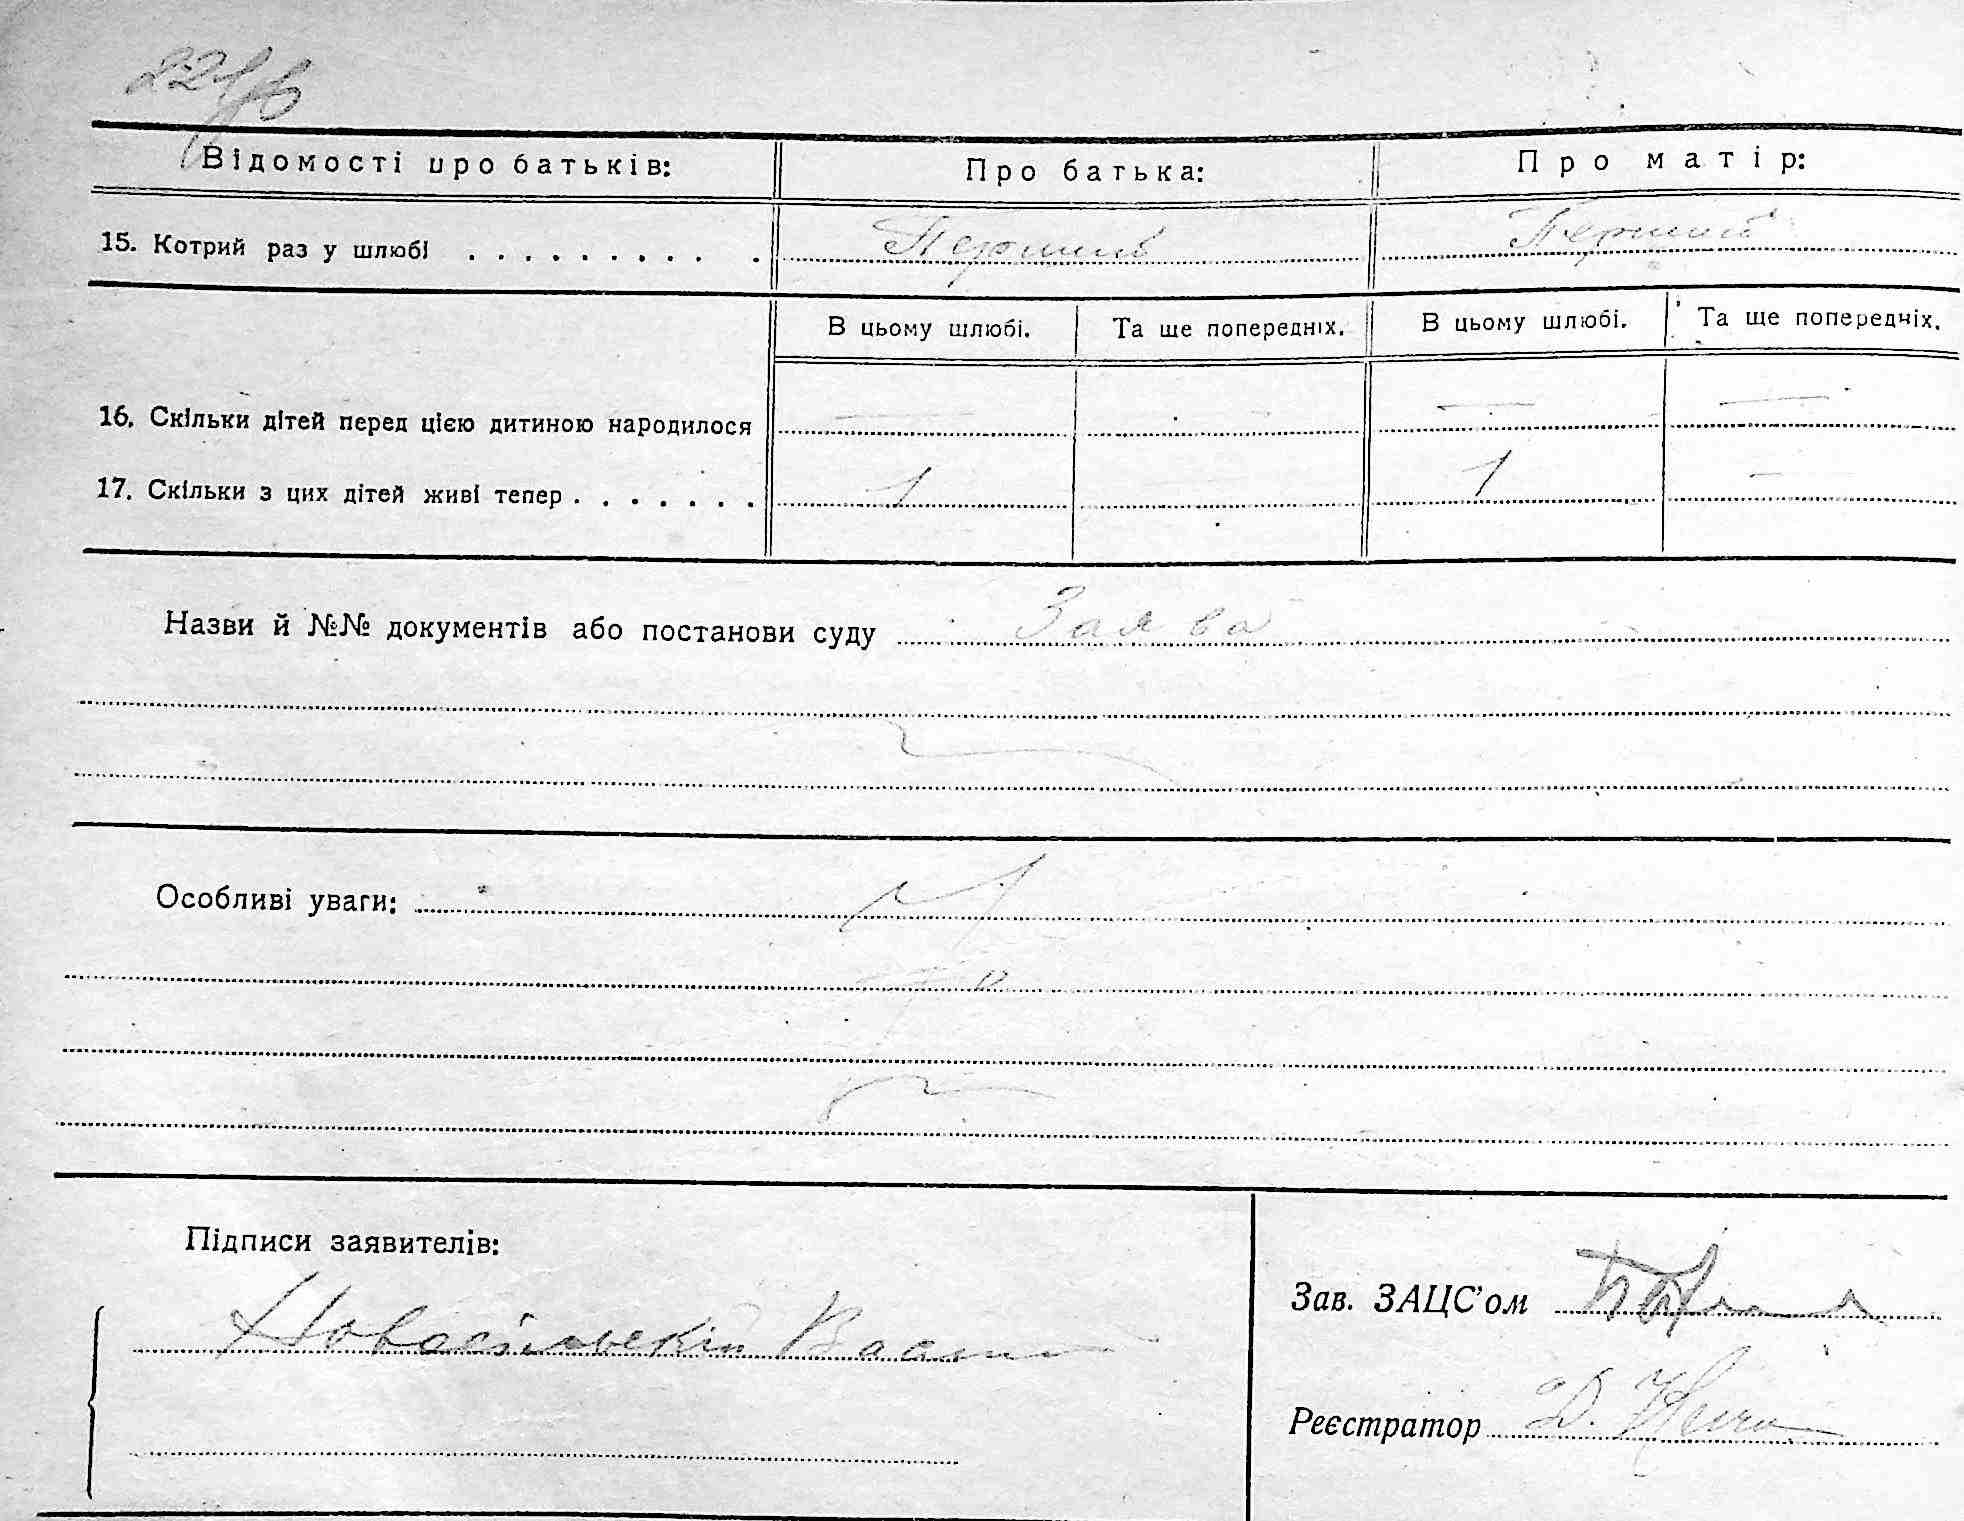 Відомості про батьків: Про батька: Про матір:
15. Котрий раз у шлюбі . . . . . . . . . . Перший Перший
В цьому шлюбі. Та ще попередніх. В цьому шлюбі. Та ще попередніх.
16. Скільки дітей перед цією дитиною народилося — — — —
17. Скільки з цих дітей живі тепер . . . . . . . 1 1 —
Назви й №№ документів або постанови суду Заява
Особливі уваги:
Підписи заявителів:
Зав. ЗАЦС'ом
Реєстратор Д.